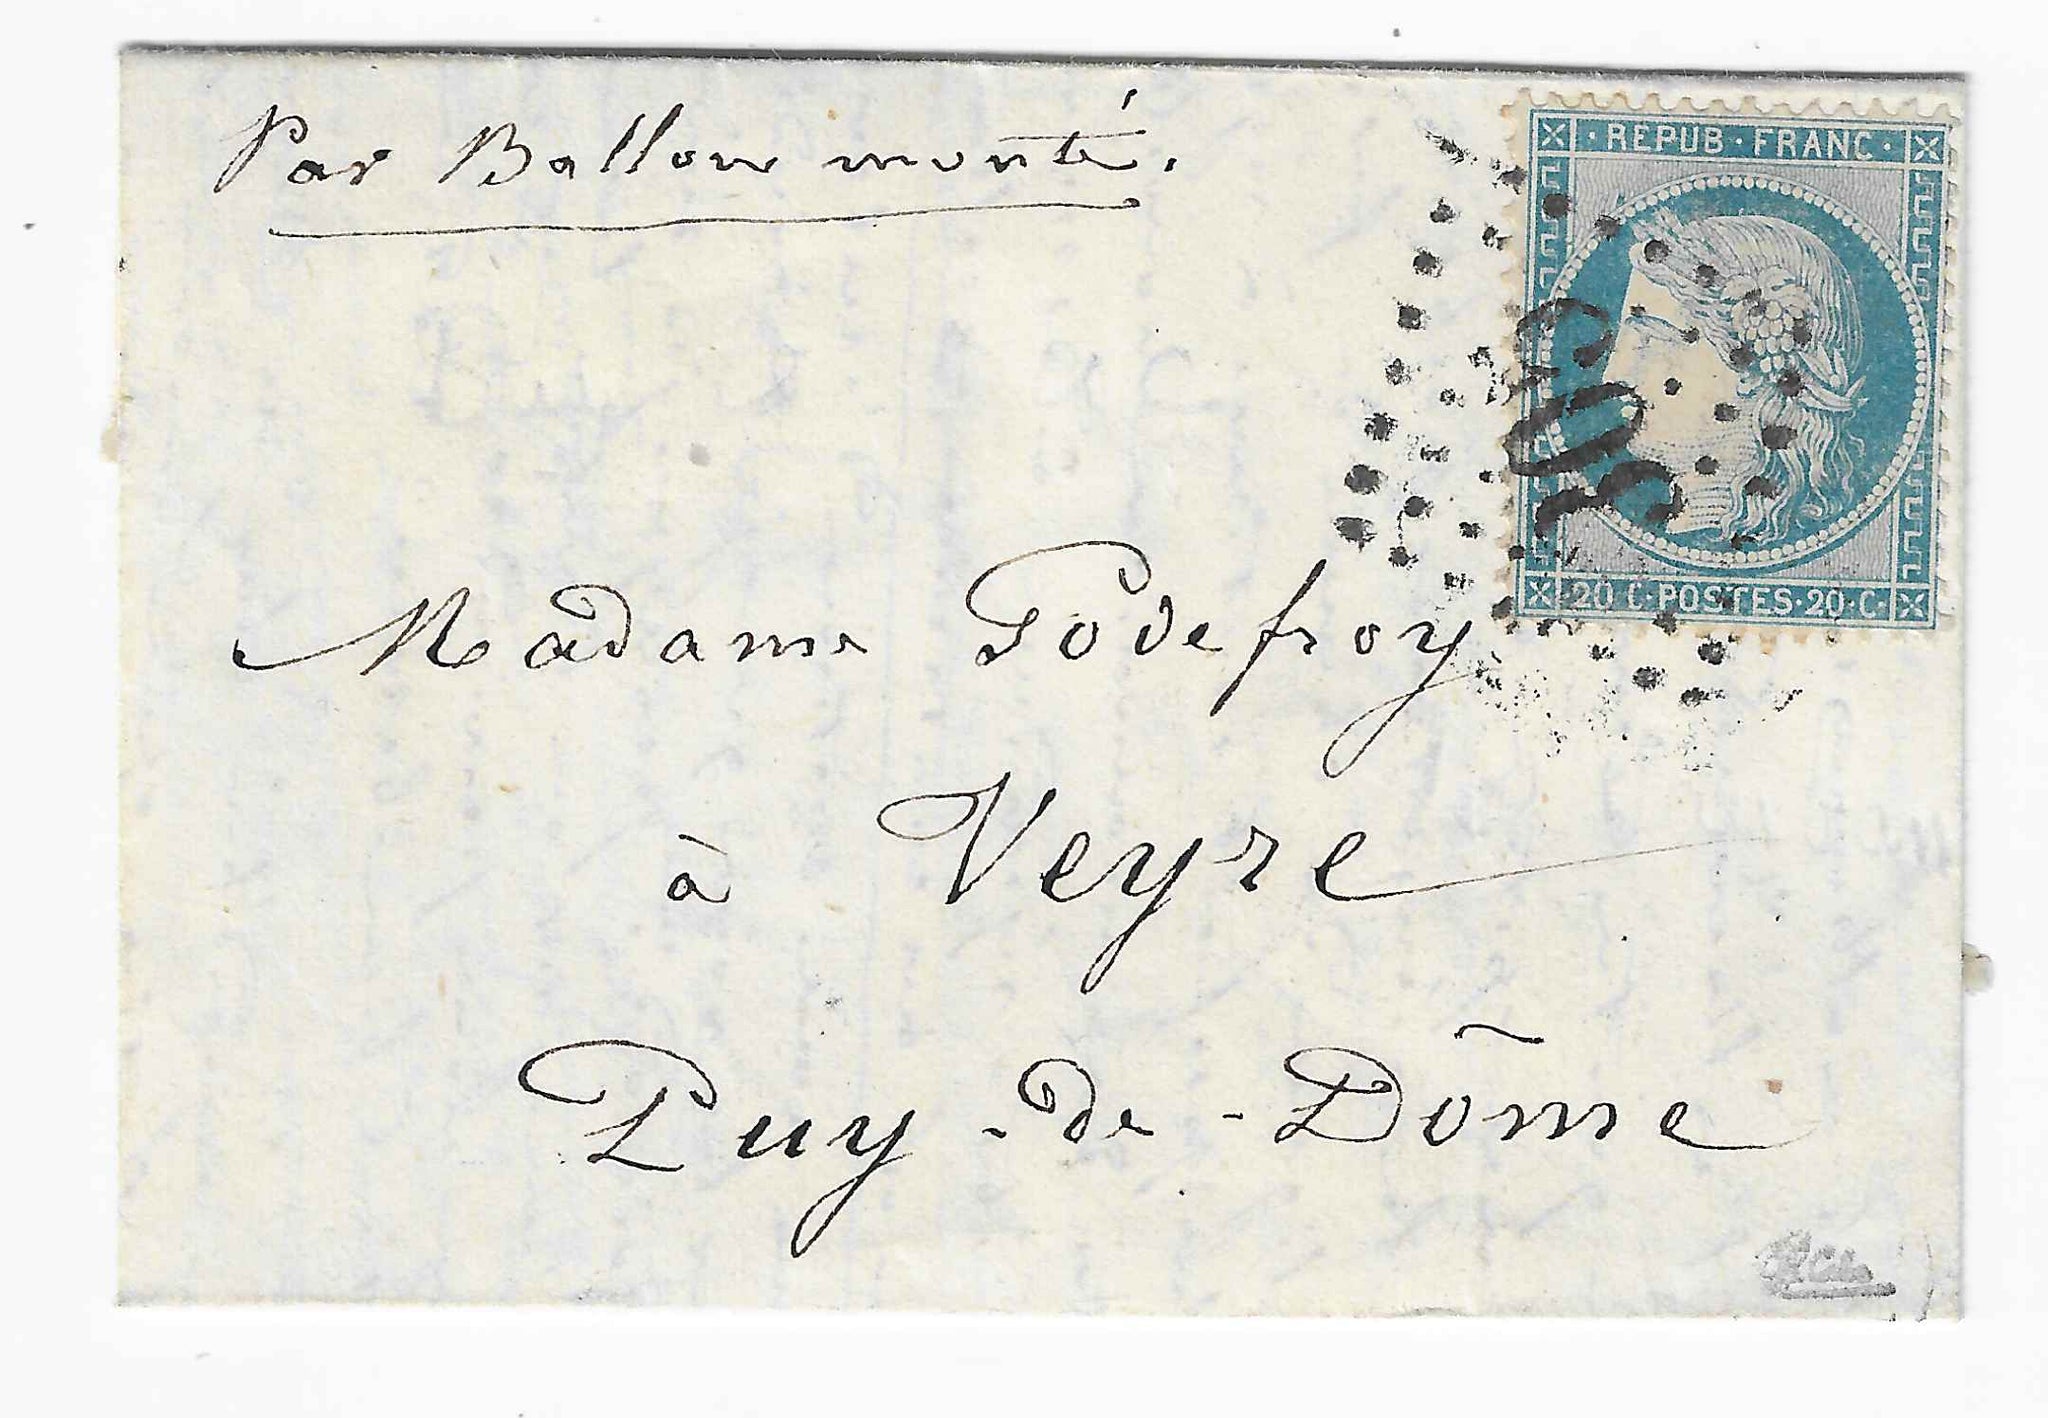 Par Ballon monté.
· REPUB · FRANC ·
· 20 C · POSTES · 20 · C ·
Madame Godefroy
à Veyre
Puy-de-Dôme